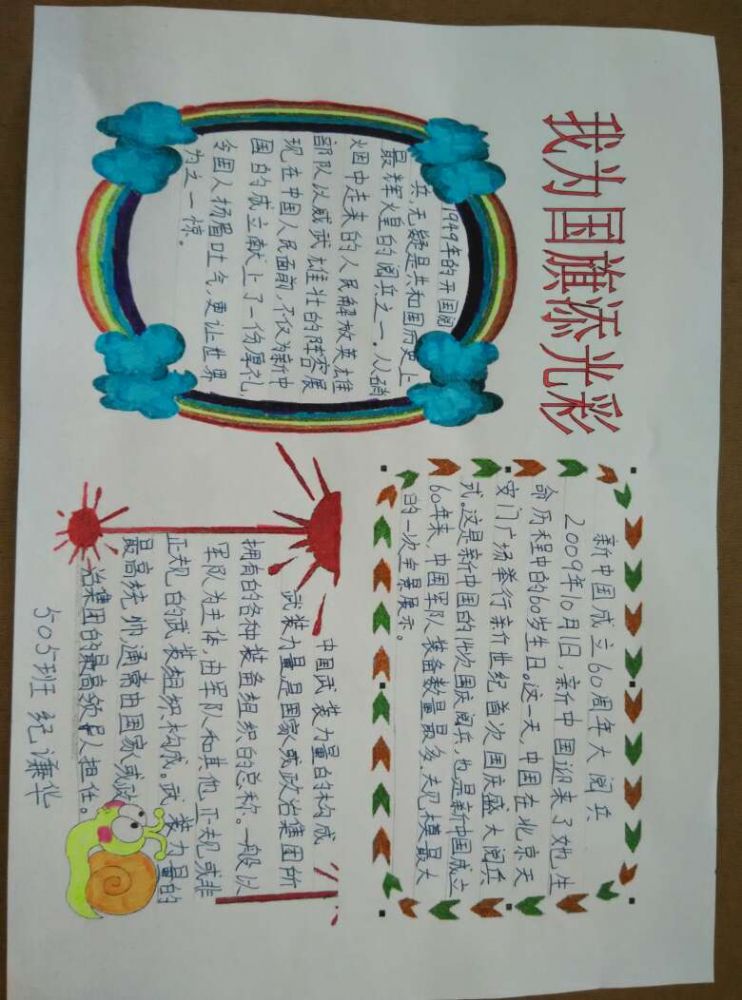 我为国旗添光彩
1949年的开国阅
兵,无疑是共和国历史上
最辉煌的阅兵之一。从硝
烟中走来的人民解放英雄
部队以威武雄壮的阵容展
现在中国人民面前,不仅为新中
国的成立献上了一份厚礼,
令国人扬眉吐气,更让世界
为之一惊。
新中国成立60周年大阅兵
2009年10月1日,新中国迎来了她生
命历程中的60岁生日。这一天,中国在北京天
安门广场举行新世纪首次国庆盛大阅兵
式。这是新中国的14次国庆阅兵,也是新中国成立
60年来,中国军队装备数量最多,规模最大
的一次全景展示。
中国武装力量的构成
武装力量,是国家或政治集团所
拥有的各种装备组织的总称。一般以
军队为主体,由军队和其他正规或非
正规的武装组织构成。武装力量的
最高统帅,通常由国家或政
治集团的最高领导人担任。
505班 纪谦华